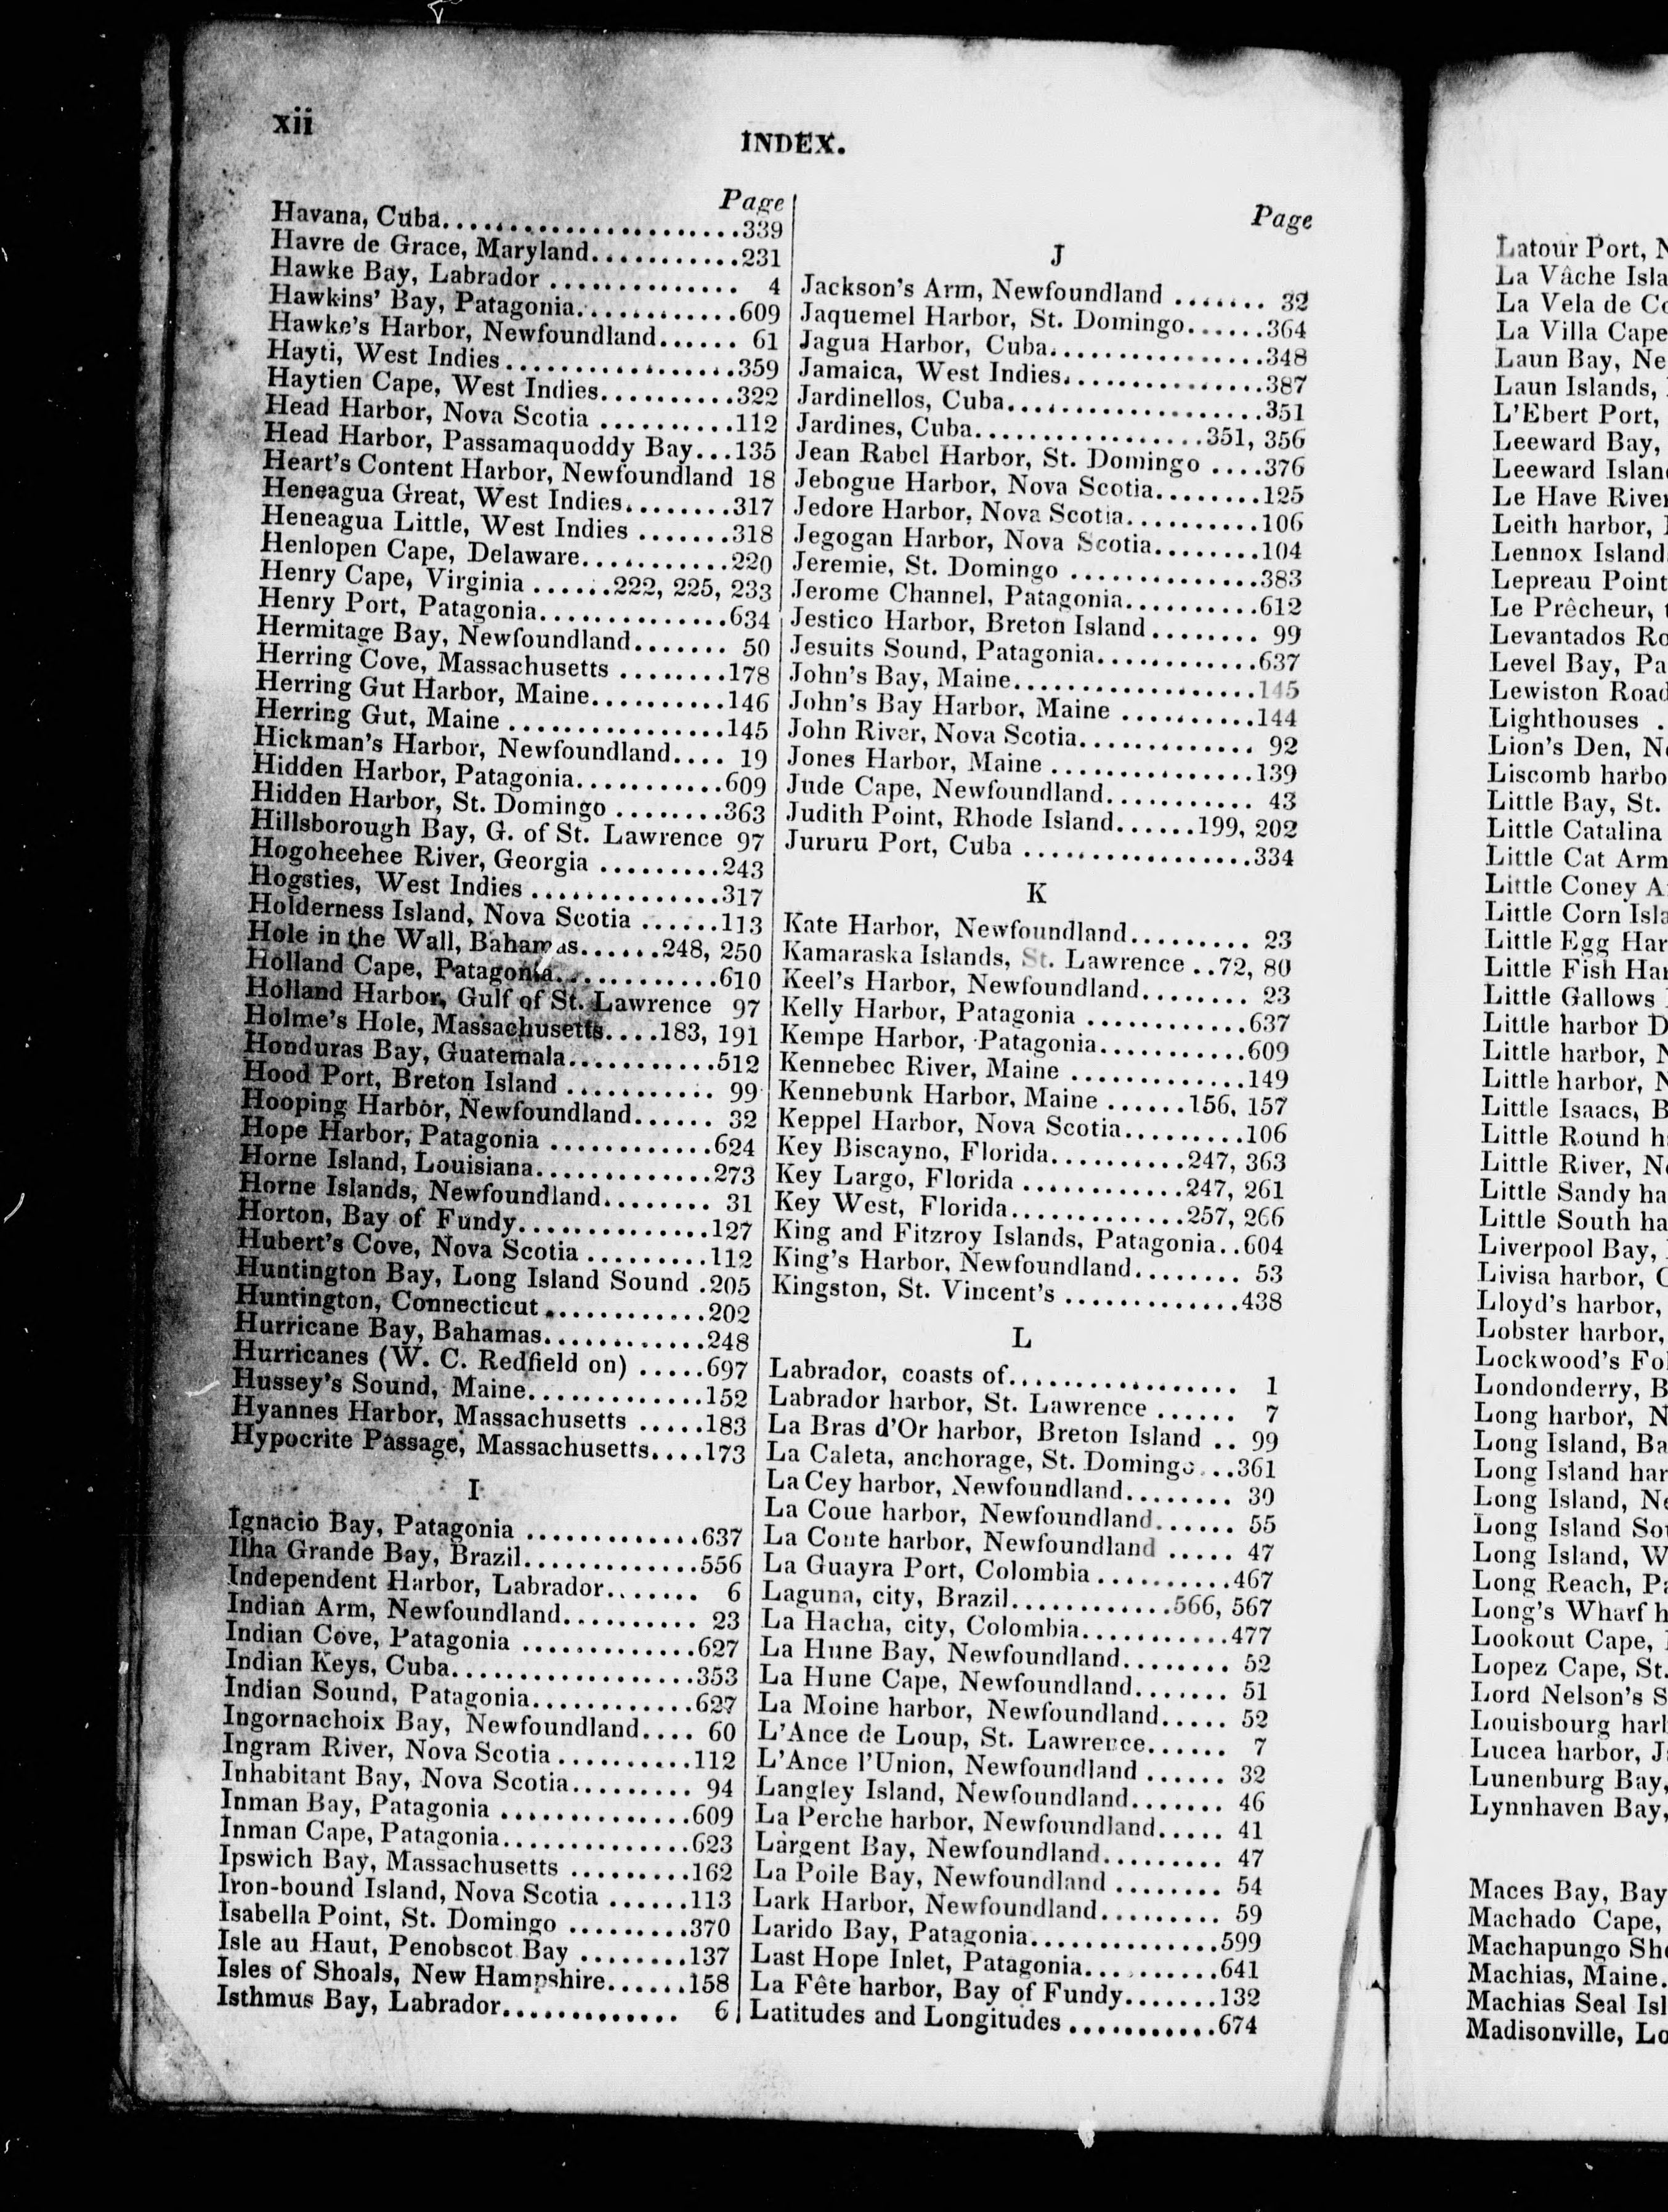 xii
INDEX.
Page
Havana, Cuba.......................339
Havre de Grace, Maryland...........231
Hawke Bay, Labrador .............. 4
Hawkins' Bay, Patagonia............609
Hawke's Harbor, Newfoundland...... 61
Hayti, West Indies..................359
Haytien Cape, West Indies..........322
Head Harbor, Nova Scotia ..........112
Head Harbor, Passamaquoddy Bay...135
Heart's Content Harbor, Newfoundland 18
Heneagua Great, West Indies........317
Heneagua Little, West Indies .......318
Henlopen Cape, Delaware...........220
Henry Cape, Virginia ......222, 225, 233
Henry Port, Patagonia..............634
Hermitage Bay, Newfoundland....... 50
Herring Cove, Massachusetts ........178
Herring Gut Harbor, Maine..........146
Herring Gut, Maine ................145
Hickman's Harbor, Newfoundland.... 19
Hidden Harbor, Patagonia...........609
Hidden Harbor, St. Domingo ........363
Hillsborough Bay, G. of St. Lawrence 97
Hogoheehee River, Georgia .........243
Hogsties, West Indies ...............317
Holderness Island, Nova Scotia ......113
Hole in the Wall, Bahamas......248, 250
Holland Cape, Patagonia............610
Holland Harbor, Gulf of St. Lawrence 97
Holme's Hole, Massachusetts....183, 191
Honduras Bay, Guatemala...........512
Hood Port, Breton Island ........... 99
Hooping Harbor, Newfoundland...... 32
Hope Harbor, Patagonia ............624
Horne Island, Louisiana.............273
Horne Islands, Newfoundland........ 31
Horton, Bay of Fundy...............127
Hubert's Cove, Nova Scotia .........112
Huntington Bay, Long Island Sound .205
Huntington, Connecticut............202
Hurricane Bay, Bahamas............248
Hurricanes (W. C. Redfield on) .....697
Hussey's Sound, Maine.............152
Hyannes Harbor, Massachusetts .....183
Hypocrite Passage, Massachusetts....173
I
Ignacio Bay, Patagonia .............637
Ilha Grande Bay, Brazil.............556
Independent Harbor, Labrador....... 6
Indian Arm, Newfoundland.......... 23
Indian Cove, Patagonia .............627
Indian Keys, Cuba..................353
Indian Sound, Patagonia............627
Ingornachoix Bay, Newfoundland.... 60
Ingram River, Nova Scotia ..........112
Inhabitant Bay, Nova Scotia......... 94
Inman Bay, Patagonia ..............609
Inman Cape, Patagonia..............623
Ipswich Bay, Massachusetts .........162
Iron-bound Island, Nova Scotia ......113
Isabella Point, St. Domingo .........370
Isle au Haut, Penobscot Bay ........137
Isles of Shoals, New Hampshire......158
Isthmus Bay, Labrador............. 6
Page
J
Jackson's Arm, Newfoundland ....... 32
Jaquemel Harbor, St. Domingo......364
Jagua Harbor, Cuba................348
Jamaica, West Indies...............387
Jardinellos, Cuba...................351
Jardines, Cuba..................351, 356
Jean Rabel Harbor, St. Domingo ....376
Jebogue Harbor, Nova Scotia........125
Jedore Harbor, Nova Scotia..........106
Jegogan Harbor, Nova Scotia........104
Jeremie, St. Domingo ..............383
Jerome Channel, Patagonia..........612
Jestico Harbor, Breton Island ........ 99
Jesuits Sound, Patagonia............637
John's Bay, Maine..................145
John's Bay Harbor, Maine ..........144
John River, Nova Scotia............. 92
Jones Harbor, Maine ...............139
Jude Cape, Newfoundland........... 43
Judith Point, Rhode Island......199, 202
Jururu Port, Cuba .................334
K
Kate Harbor, Newfoundland......... 23
Kamaraska Islands, St. Lawrence ..72, 80
Keel's Harbor, Newfoundland........ 23
Kelly Harbor, Patagonia ............637
Kempe Harbor, Patagonia...........609
Kennebec River, Maine .............149
Kennebunk Harbor, Maine ......156, 157
Keppel Harbor, Nova Scotia.........106
Key Biscayno, Florida..........247, 363
Key Largo, Florida ............247, 261
Key West, Florida.............257, 266
King and Fitzroy Islands, Patagonia..604
King's Harbor, Newfoundland........ 53
Kingston, St. Vincent's .............438
L
Labrador, coasts of................. 1
Labrador harbor, St. Lawrence ...... 7
La Bras d'Or harbor, Breton Island .. 99
La Caleta, anchorage, St. Domingo...361
La Cey harbor, Newfoundland........ 30
La Coue harbor, Newfoundland...... 55
La Conte harbor, Newfoundland ..... 47
La Guayra Port, Colombia ..........467
Laguna, city, Brazil............566, 567
La Hacha, city, Colombia...........477
La Hune Bay, Newfoundland........ 52
La Hune Cape, Newfoundland....... 51
La Moine harbor, Newfoundland..... 52
L'Ance de Loup, St. Lawrence...... 7
L'Ance l'Union, Newfoundland ...... 32
Langley Island, Newfoundland....... 46
La Perche harbor, Newfoundland..... 41
Largent Bay, Newfoundland......... 47
La Poile Bay, Newfoundland ........ 54
Lark Harbor, Newfoundland......... 59
Larido Bay, Patagonia..............599
Last Hope Inlet, Patagonia..........641
La Fête harbor, Bay of Fundy.......132
Latitudes and Longitudes ...........674
Latour Port,
La Vâche
La Vela de
La Villa Cape
Laun Bay,
Laun Islands,
L'Ebert Port,
Leeward Bay,
Leeward
Le Have River
Leith harbor,
Lennox Island
Lepreau Point
Le Prêcheur,
Levantados
Level Bay,
Lewiston Road
Lighthouses .
Lion's Den,
Liscomb
Little Bay, St.
Little Catalina
Little Cat Arm
Little Coney
Little Corn
Little Egg
Little Fish
Little Gallows
Little harbor
Little harbor,
Little harbor,
Little Isaacs,
Little Round
Little River,
Little Sandy
Little South
Liverpool Bay,
Livisa harbor,
Lloyd's harbor,
Lobster harbor,
Lockwood's
Londonderry,
Long harbor,
Long Island,
Long Island
Long Island,
Long Island
Long Island,
Long Reach,
Long's Wharf
Lookout Cape,
Lopez Cape, St.
Lord Nelson's
Louisbourg
Lucea harbor,
Lunenburg Bay,
Lynnhaven Bay,
Maces Bay, Bay
Machado Cape,
Machapungo
Machias, Maine.
Machias Seal
Madisonville,